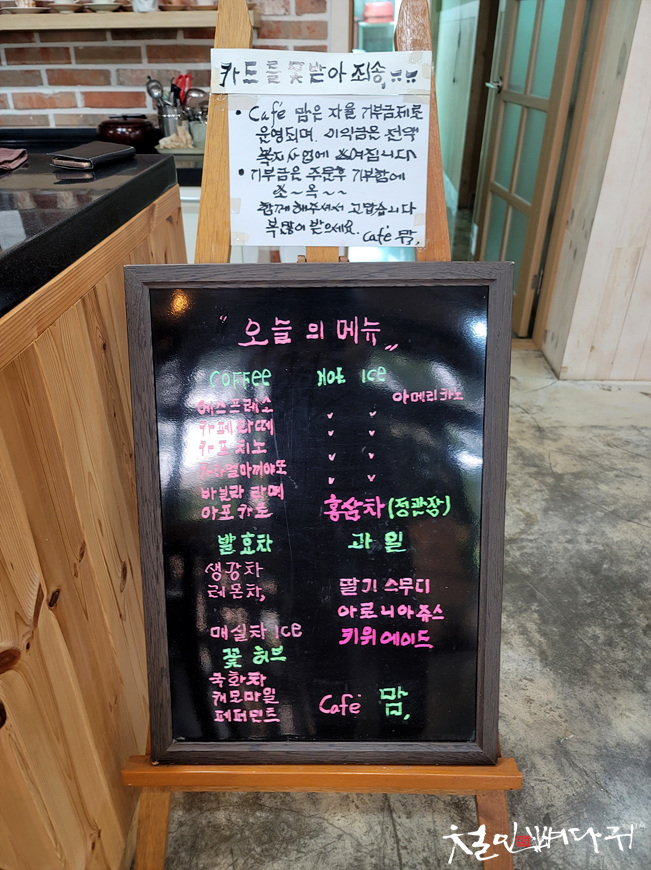 카드를 못받아 죄송,ㅠㅠ
• Café 맘은 자율 기부금제로
운영되며, 이익금은 전액
복지사업에 쓰여집니다
• 기부금은 주문후 기부함에
쏘~옥~~
함께해주셔서 고맙습니다
복많이 받으세요. café 맘,
"오늘의 메뉴"
COFFee Hot ICe
에스프레소 아메리카노
카페라떼
카프치노
카라멜마끼야또
바닐라 라떼
아포카토 홍삼차(정관장)
발효차 과일
생강차
레몬차, 딸기 스무디
아로니아쥬스
매실차 ICe 키위에이드
꽃 허브
국화차
캐모마일 Café 맘,
페퍼민트
철인뼈다귀